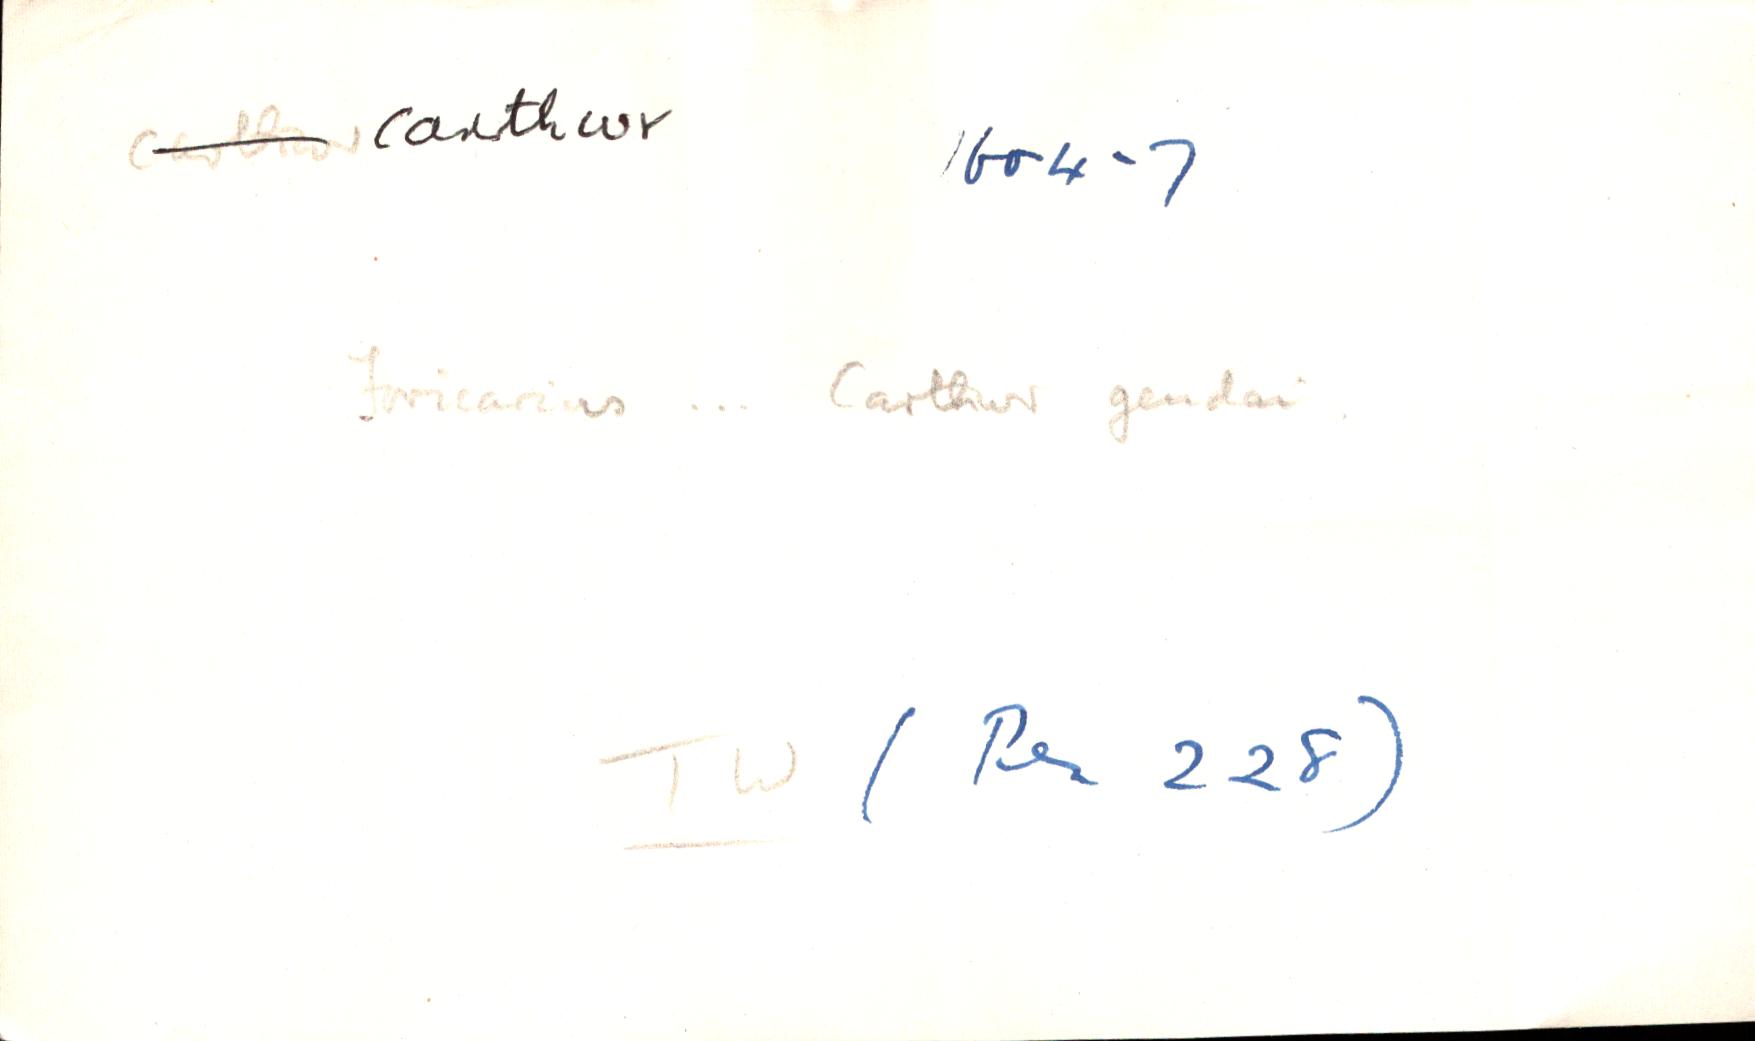 carthwr carthwr 1604-7
Foricarius ... Carthwr geudai.
TW (Pen 228)